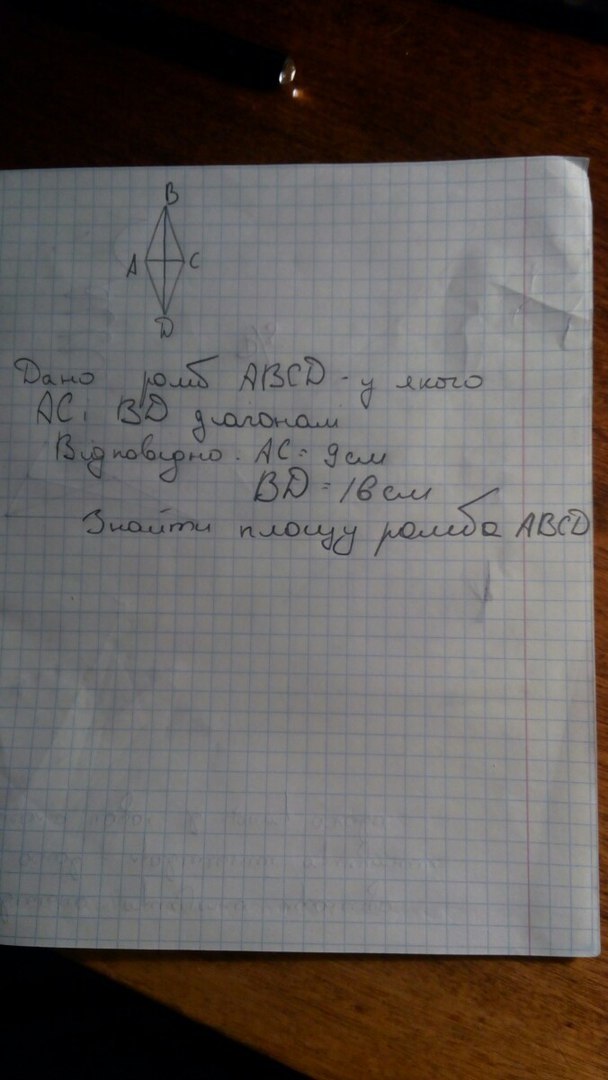 B
A C
D
Дано ромб ABCD - у якого
AC і BD діагоналі
Відповідно. AC = 9см
BD = 16см
Знайти площу ромба ABCD